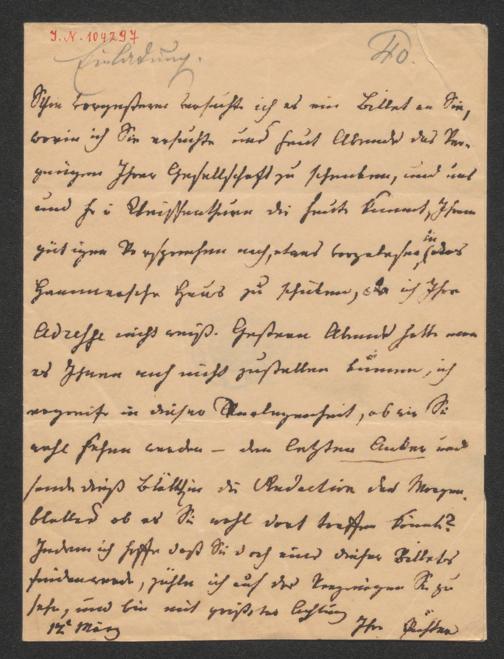 I.N. 104297
Einladung.
40.
Schon vorgestern versuchte ich es ein Billet an Sie,
worin ich Sie ersuchte uns heut Abends das Ver-
gnügen Ihrer Gesellschaft zu schenken, und uns
und die heute kommt, Ihrem
gütigen Versprechen nach, etwas vorzulesen, in das
Hammersche Haus zu schicken, da ich Ihre
Adresse nicht weiß. Gestern Abends hatte man
es Ihnen noch nicht zustellen können, ich
ergreife in dieser Verlegenheit, ob wir Sie
wohl sehen werden – den letzten Anker und
sende dieß Blättchen die Redaction des Morgen-
blattes ob es Sie wohl dort treffen könnte?
Indem ich hoffe daß Sie doch eins dieser Billets
finden werde, zähle ich auf das Vergnügen Sie zu
sehn, und bin mit größter Achtung
12t März
Ihre